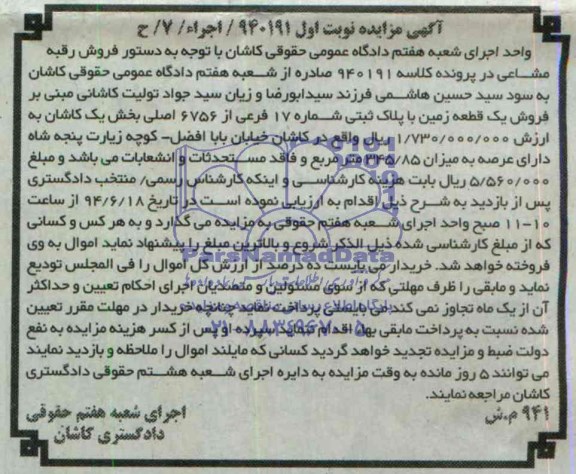 آگهی مزایده نوبت اول ۹۴۰۱۹۱ / اجراء/ ۷/ ح
واحد اجرای شعبه هفتم دادگاه عمومی حقوقی کاشان با توجه به دستور فروش رقبه
مشاعی در پرونده کلاسه ۹۴۰۱۹۱ صادره از شعبه هفتم دادگاه عمومی حقوقی کاشان
به سود سید حسین هاشمی فرزند سیدابورضا و زیان سید جواد تولیت کاشانی مبنی بر
فروش یک قطعه زمین با پلاک ثبتی شماره ۱۷ فرعی از ۶۷۵۶ اصلی بخش یک کاشان به
ارزش ۱/۷۳۰/۰۰۰/۰۰۰ ریال واقع در کاشان خیابان بابا افضل- کوچه زیارت پنجه شاه
دارای عرصه به میزان ۳۴۵/۸۵ متر مربع و فاقد مستحدثات و انشعابات می باشد و مبلغ
۵/۵۶۰/۰۰۰ ریال بابت هزینه کارشناسی و اینکه کارشناس رسمی/ منتخب دادگستری
پس از بازدید به شرح ذیل اقدام به ارزیابی نموده است در تاریخ ۹۴/۶/۱۸ از ساعت
۱۰-۱۱ صبح واحد اجرای شعبه هفتم حقوقی به مزایده می گذارد و به هر کس و کسانی
که از مبلغ کارشناسی شده ذیل الذکر شروع و بالاترین مبلغ را پیشنهاد نماید اموال به وی
فروخته خواهد شد. خریدار می بایست ده درصد از ارزش کل اموال را فی المجلس تودیع
ParsNamadData
نماید و مابقی را ظرف مهلتی که از سوی مسئولین و متصدیان اجرای احکام تعیین و حداکثر
آن از یک ماه تجاوز نمی کند می بایستی پرداخت نماید چنانچه خریدار در مهلت مقرر تعیین
شده نسبت به پرداخت مابقی بهاء اقدام ننماید سپرده او پس از کسر هزینه مزایده به نفع
دولت ضبط و مزایده تجدید خواهد گردید کسانی که مایلند اموال را ملاحظه و بازدید نمایند
می توانند ۵ روز مانده به وقت مزایده به دایره اجرای شعبه هشتم حقوقی دادگستری
کاشان مراجعه نمایند.
۹۴۱ م.ش
اجرای شعبه هفتم حقوقی
دادگستری کاشان